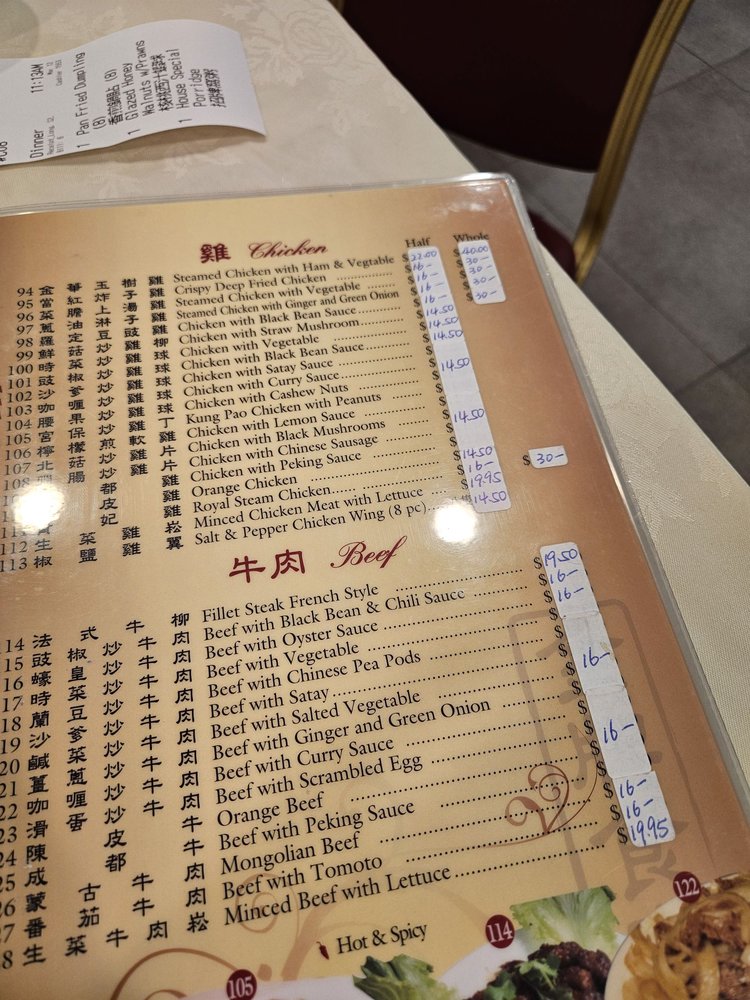 Dinner 11:13AM
1 Pan Fried Dumpling
(8)
Glazed Honey
Walnuts w/Prawns
1 House Special
Porridge
雞 Chicken Half Whole
94 金華玉樹雞 Steamed Chicken with Ham & Vegtable $22.00 $40.00
95 當紅炸子雞 Crispy Deep Fried Chicken $16- $30-
96 菜膽上湯雞 Steamed Chicken with Vegetable $16- $30-
97 蔥油淋雞 Steamed Chicken with Ginger and Green Onion $16- $30-
98 Chicken with Black Bean Sauce $16- $30-
99 鮮菇炒雞柳 Chicken with Straw Mushroom $14.50
100 時菜炒雞球 Chicken with Vegetable $14.50
101 豉椒炒雞球 Chicken with Black Bean Sauce $14.50
102 沙爹炒雞球 Chicken with Satay Sauce
103 咖喱炒雞球 Chicken with Curry Sauce 14.50
104 腰果炒雞丁 Chicken with Cashew Nuts
105 宮保雞 Kung Pao Chicken with Peanuts
106 檸檬煎軟雞 Chicken with Lemon Sauce
107 北菇炒雞片 Chicken with Black Mushrooms 14.50
腸炒雞片 Chicken with Chinese Sausage
都 Chicken with Peking Sauce $14.50
皮雞 Orange Chicken $16-
妃雞 Royal Steam Chicken $30-
112 生菜雞崧 Minced Chicken Meat with Lettuce $19.95
113 椒鹽雞翼 Salt & Pepper Chicken Wing (8 pc) 14.50
牛肉 Beef
114 法式牛柳 Fillet Steak French Style $19.50
15 豉椒炒牛肉 Beef with Black Bean & Chili Sauce $16-
16 蠔皇炒牛肉 Beef with Oyster Sauce $16-
17 時菜炒牛肉 Beef with Vegetable $
18 蘭豆炒牛肉 Beef with Chinese Pea Pods $
19 沙爹炒牛肉 Beef with Satay $16-
20 鹹菜炒牛肉 Beef with Salted Vegetable $
21 薑蔥炒牛肉 Beef with Ginger and Green Onion $
22 咖喱炒牛肉 Beef with Curry Sauce $16-
23 滑蛋炒牛肉 Beef with Scrambled Egg $
24 陳皮牛 Orange Beef $
25 成都牛 Beef with Peking Sauce $16-
26 蒙古牛肉 Mongolian Beef $16-
27 番茄牛肉 Beef with Tomoto $
28 生菜牛肉崧 Minced Beef with Lettuce $19.95
Hot & Spicy
105
114
122